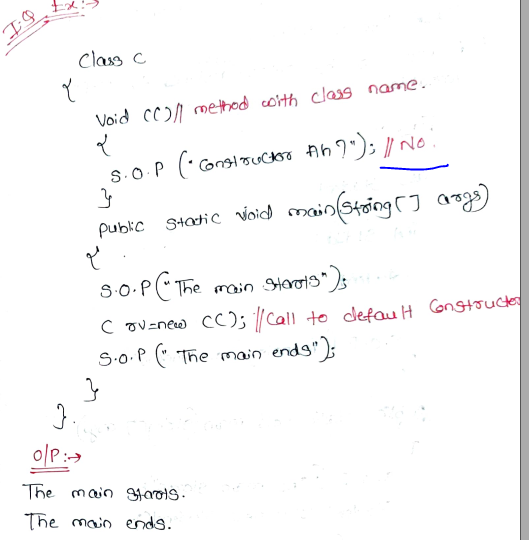 I.Q Ex:→
Class C
{
Void C()// method with class name.
{
S.O.P ("Constructor Ah?"); // No.
}
public static void main(String[] args)
{
S.O.P("The main starts");
C rv=new C(); //Call to default Constructor
S.O.P (" The main ends");
}
}.
O/P:→
The main starts.
The main ends.